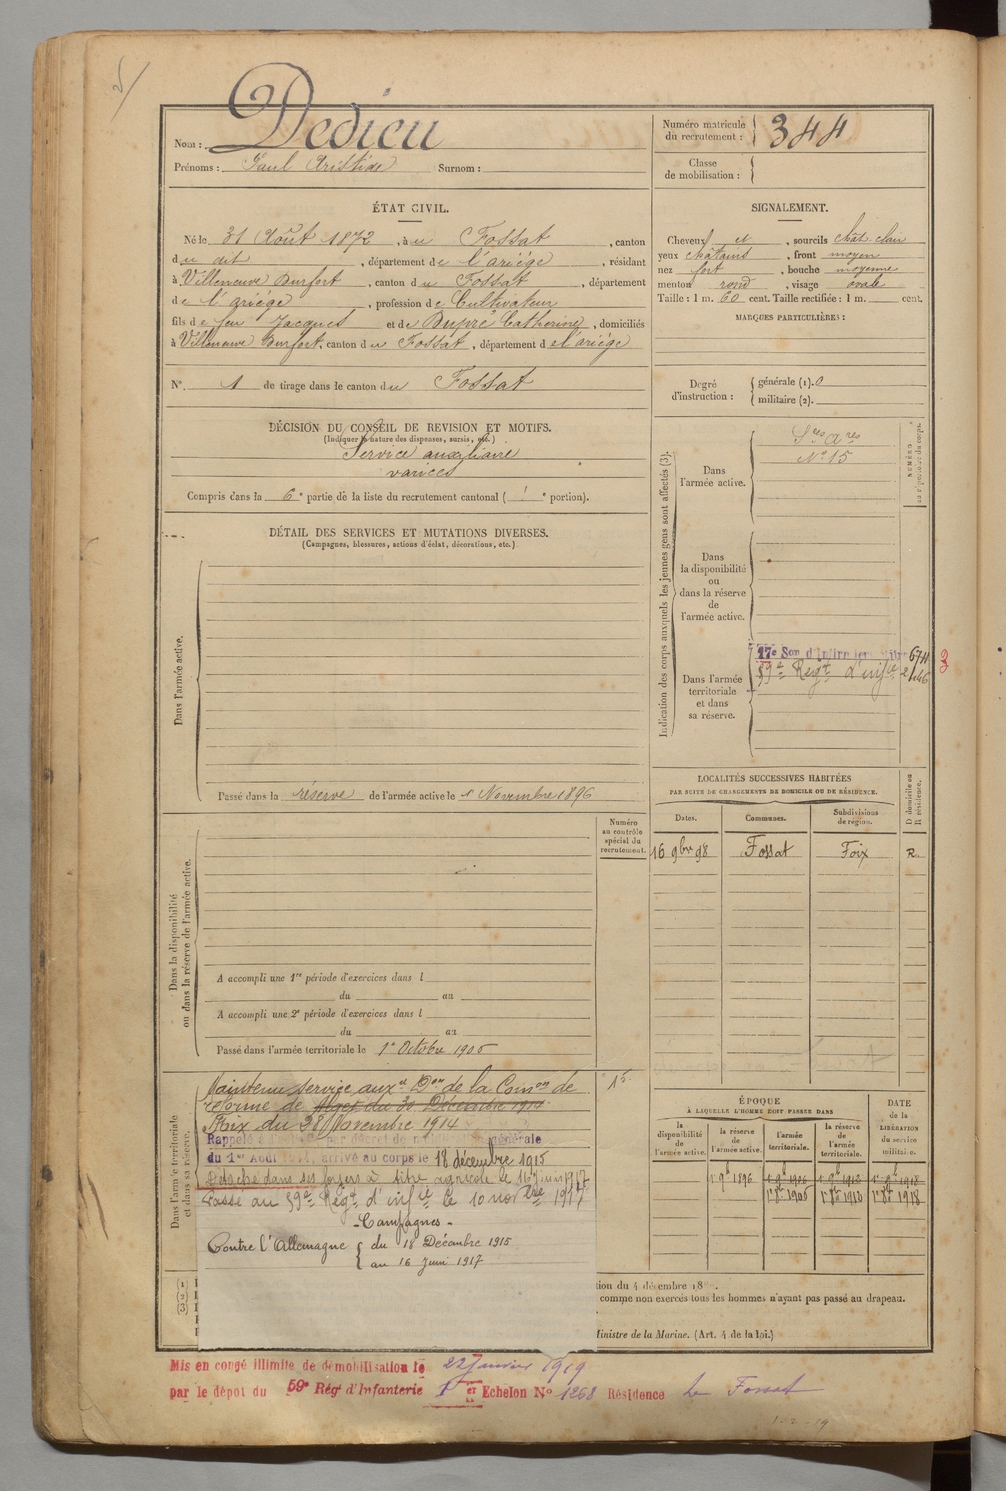 Nom : Dedieu
Prénoms : Paul Aristide Surnom :
Numéro matricule du recrutement : 344
Classe de mobilisation :
ÉTAT CIVIL.
Né le 31 Août 1872, à u Fossat, canton
d u dit, département de l'ariége, résidant
à Villeneuve Durfort, canton du Fossat, département
de l'ariége, profession de Cultivateur
fils de feu Jacques et de Dupré Catherine, domiciliés
à Villeneuve Durfort, canton du Fossat, département de l'ariége
N° 1 de tirage dans le canton du Fossat
SIGNALEMENT.
Cheveux et, sourcils chât. clair
yeux châtains, front moyen
nez fort, bouche moyenne
menton rond, visage ovale
Taille : 1 m. 60 cent. Taille rectifiée : 1 m. cent.
MARQUES PARTICULIÈRES :
Degré d'instruction : générale (1). 0
militaire (2).
DÉCISION DU CONSEIL DE REVISION ET MOTIFS.
(Indiquer la nature des dispenses, sursis, etc.)
Service auxiliaire
varices
Compris dans la 6e partie de la liste du recrutement cantonal ( e portion).
DÉTAIL DES SERVICES ET MUTATIONS DIVERSES.
(Campagnes, blessures, actions d'éclat, décorations, etc.)
Dans l'armée active.
Passé dans la réserve de l'armée active le 1 Novembre 1896
Indication des corps auxquels les jeunes gens sont affectés (3).
Dans l'armée active.
Sres ares
N° 15
NUMÉRO au répertoire du corps.
Dans la disponibilité ou dans la réserve de l'armée active.
Dans l'armée territoriale et dans sa réserve.
17e Son d'Infirmiers 674
59e Régt d'infie
3
LOCALITÉS SUCCESSIVES HABITÉES
PAR SUITE DE CHANGEMENTS DE DOMICILE OU DE RÉSIDENCE.
Dates. Communes. Subdivisions de région. D domicile ou R résidence.
16 9bre 98 Fossat Foix R.
Numéro au contrôle spécial du recrutement.
Dans la disponibilité ou dans la réserve de l'armée active.
A accompli une 1re période d'exercices dans l
du au
A accompli une 2e période d'exercices dans l
du au
Passé dans l'armée territoriale le 1er Octobre 1906
Dans l'armée territoriale et dans sa réserve.
Maintenu service auxre Don de la Comon de
réforme de Alger du 30 Décembre 1914
Foix du 28 Novembre 1914
Rappelé à l'activité par décret de mobilisation générale
du 1er Août 1914, arrivé au corps le 18 décembre 1915
Détaché dans ses foyers à titre agricole le 16 Juin 1917
Passé au 59e Régt d'infie le 10 novbre 1917
- Campagnes -
Contre l'Allemagne { du 18 Décembre 1915
au 16 Juin 1917
ÉPOQUE
À LAQUELLE L'HOMME DOIT PASSER DANS
la disponibilité de l'armée active. la réserve de l'armée active. l'armée territoriale. la réserve de l'armée territoriale.
DATE de la LIBÉRATION du service militaire.
1 9b 1896
(1)
(2)
(3)
tion du 4 décembre 18
comme non exercés tous les hommes n'ayant pas passé au drapeau.
Ministre de la Marine. (Art. 4 de la loi.)
Mis en congé illimité de démobilisation le 22 Janvier 1919
par le dépôt du 59e Rég d'Infanterie 1er Echelon No 1268 Résidence Le Fossat